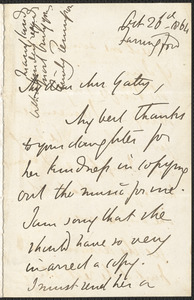 Oct 26th 1864
Farringford
My dear Mrs Gatty,
My best thanks
to your daughter for
her kindness in copying
out the music for me.
I am sorry that she
should have so very
incorrect a copy.
I must send her a